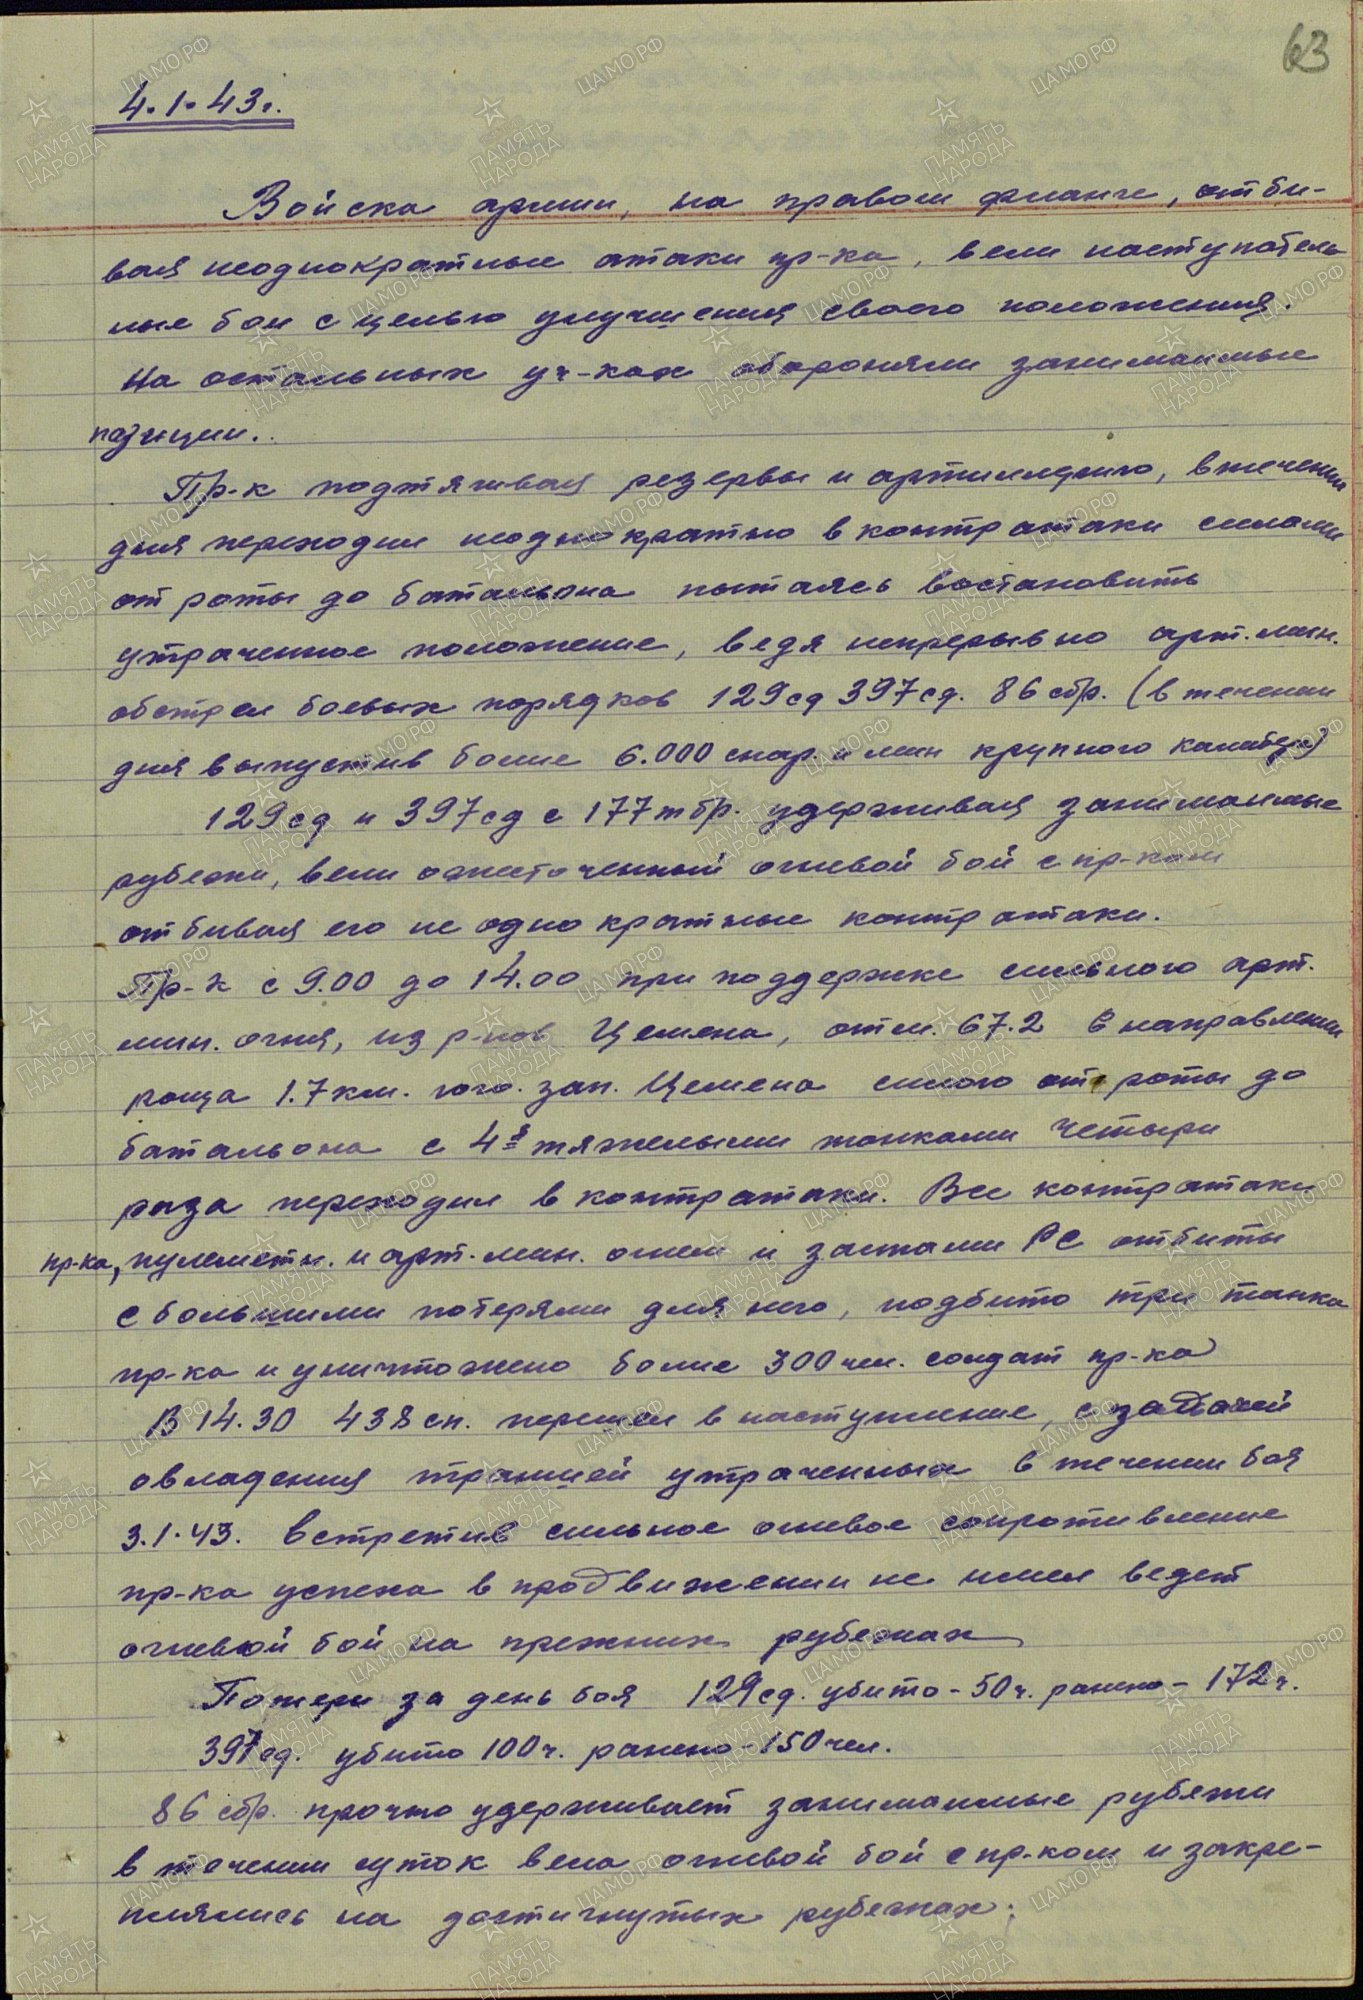 63
4.1.43г.
Войска армии, на правом фланге, отби-
вая неоднократные атаки пр-ка, вели наступатель
ные бои с целью улучшения своего положения.
На остальных уч-ках обороняли занимаемые
позиции.
Пр-к подтягивая резервы и артиллерию, в течении
дня переходил неоднократно в контратаки силами
от роты до батальона пытаясь востановить
утраченное положение, ведя непрерывно арт. мин.
обстрел боевых порядков 129 сд 397 сд. 86 сбр. (в течении
дня выпустив более 6.000 снар. и мин крупного калибра)
129 сд и 397 сд с 177 тбр. удерживая занимаемые
рубежи, вели ожесточенный огневой бой с пр-ком
отбивая его не однократные контратаки.
Пр-к с 9.00 до 14.00 при поддержке сильного арт.
мин. огня, из р-нов Цемена, отм. 67.2 в направлении
роща 1.7 км. юго. зап. Цемена силою от роты до
батальона с 4я тяжелыми танками четыри
раза переходил в контратаки. Все контратаки
пр-ка, пулеметн. и арт. мин. огнем и залпами РС отбиты
с большими потерями для него, подбито три танка
пр-ка и уничтожено более 300 чел. солдат пр-ка
В 14.30 438 сп. перешел в наступление, с задачей
овладения траншей утраченных в течении боя
3.1.43. встретив сильное огневое сопротивление
пр-ка успеха в продвижении не имел ведет
огневой бой на прежних рубежах
Потери за день боя 129 сд. убито - 50 ч. ранено - 172 ч.
397 сд. убито 100 ч. ранено - 150 чел.
86 сбр. прочно удерживает занимаемые рубежи
в течении суток вела огневой бой с пр-ком и закре-
плялись на достигнутых рубежах.
ПАМЯТЬ НАРОДА
ЦАМО.РФ